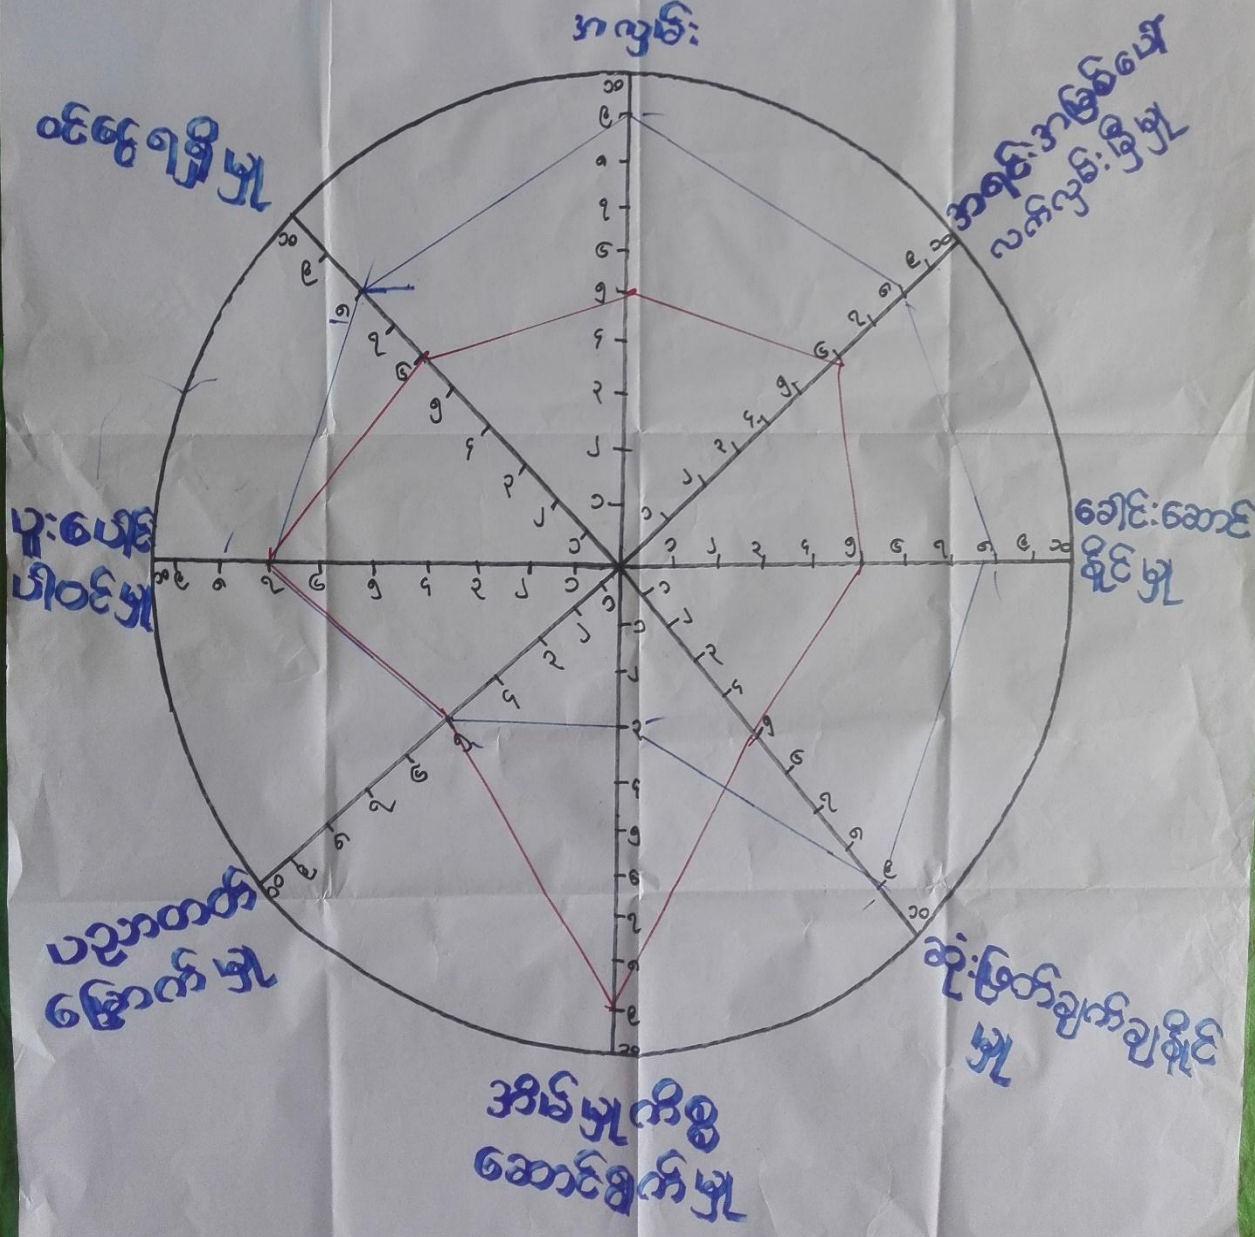 အလှမ်း
အရင်းအမြစ်ပေါ်
လက်လှမ်းမှီမှု
ခေါင်းဆောင်
နိုင်မှု
ဆုံးဖြတ်ချက်ချနိုင်
မှု
အိမ်မှုကိစ္စ
ဆောင်ရွက်မှု
ပညာတတ်
မြောက်မှု
ပူးပေါင်း
ပါဝင်မှု
ဝင်ငွေရရှိမှု
၁၀
၉
၈
၇
၆
၅
၄
၃
၂
၁
၁ ၂ ၃ ၄ ၅ ၆ ၇ ၈ ၉ ၁၀
၁ ၂ ၃ ၄ ၅ ၆ ၇ ၈ ၉ ၁၀
၁ ၂ ၃ ၄ ၅ ၆ ၇ ၈ ၉ ၁၀
၁
၂
၃
၄
၅
၆
၇
၈
၉
၁၀
၁ ၂ ၃ ၄ ၅ ၆ ၇ ၈ ၉ ၁၀
၁၀ ၉ ၈ ၇ ၆ ၅ ၄ ၃ ၂ ၁
၁၀ ၉ ၈ ၇ ၆ ၅ ၄ ၃ ၂ ၁